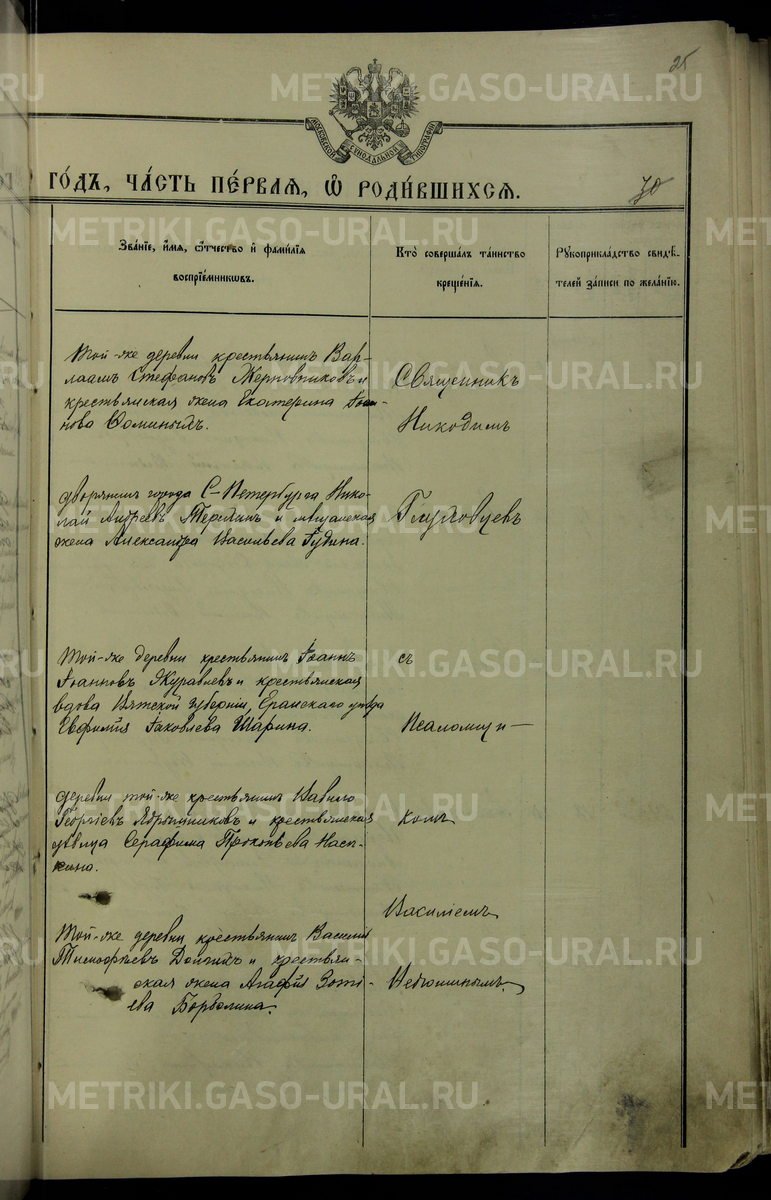 25
МОСКОВСКОЙ СУНОДАЛЬНОЙ ТИПОГРАФІИ
ГО́ДЪ, ЧА́СТЬ ПЕ́РВАЯ, Ѡ҆ РОДИ́ВШИХСЯ.
30
Зва́нїе, и҆́мя, ѻ҆́тчество и҆ фами́лїя
воспрїе́мникѡвъ.
Кто̀ соверша́лъ та́инство
креще́нїя.
Рꙋкоприкла́дство свидѣ́-
телей за́писи по жела́нїю.
Той-же деревни крестьянинъ Вар-
лаамъ Стефановъ Жерновниковъ и
крестьянская жена Екатерина Іоан-
нова Фоминыхъ.
Священикъ
Никодимъ
дворянинъ города С-Петербурга Нико-
лай Андреевъ и мещанская
жена Александра Васильева Гудина.
Глуховцевъ
Той-же деревни крестьянинъ Іоаннъ
Іоанновъ Журавлевъ и крестьянская
вдова Вятской губерніи, Еранскаго уѣзда
Евфимія Іаковлева Шарина.
съ
Псаломщи-
деревни той-же крестьянинъ Вавило
Георгіевъ и крестьянская
дѣвица Серафима Прокопьева
комъ
Той-же деревни крестьянинъ Василий
Тимофѣевъ и крестьян-
ская жена Агафія Зоті-
ева
Василіемъ
METRIKI.GASO-URAL.RU